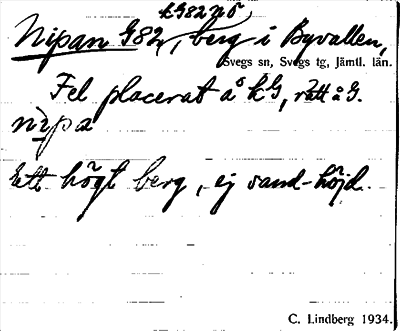 kG82 n ö
Nipan G82, berg i Byvallen,
Svegs sn, Svegs tg, Jämtl. län.
Fel placerat å kG, rätt å G.
nìpa
Ett högt berg, ej sand-höjd.
C. Lindberg 1934.